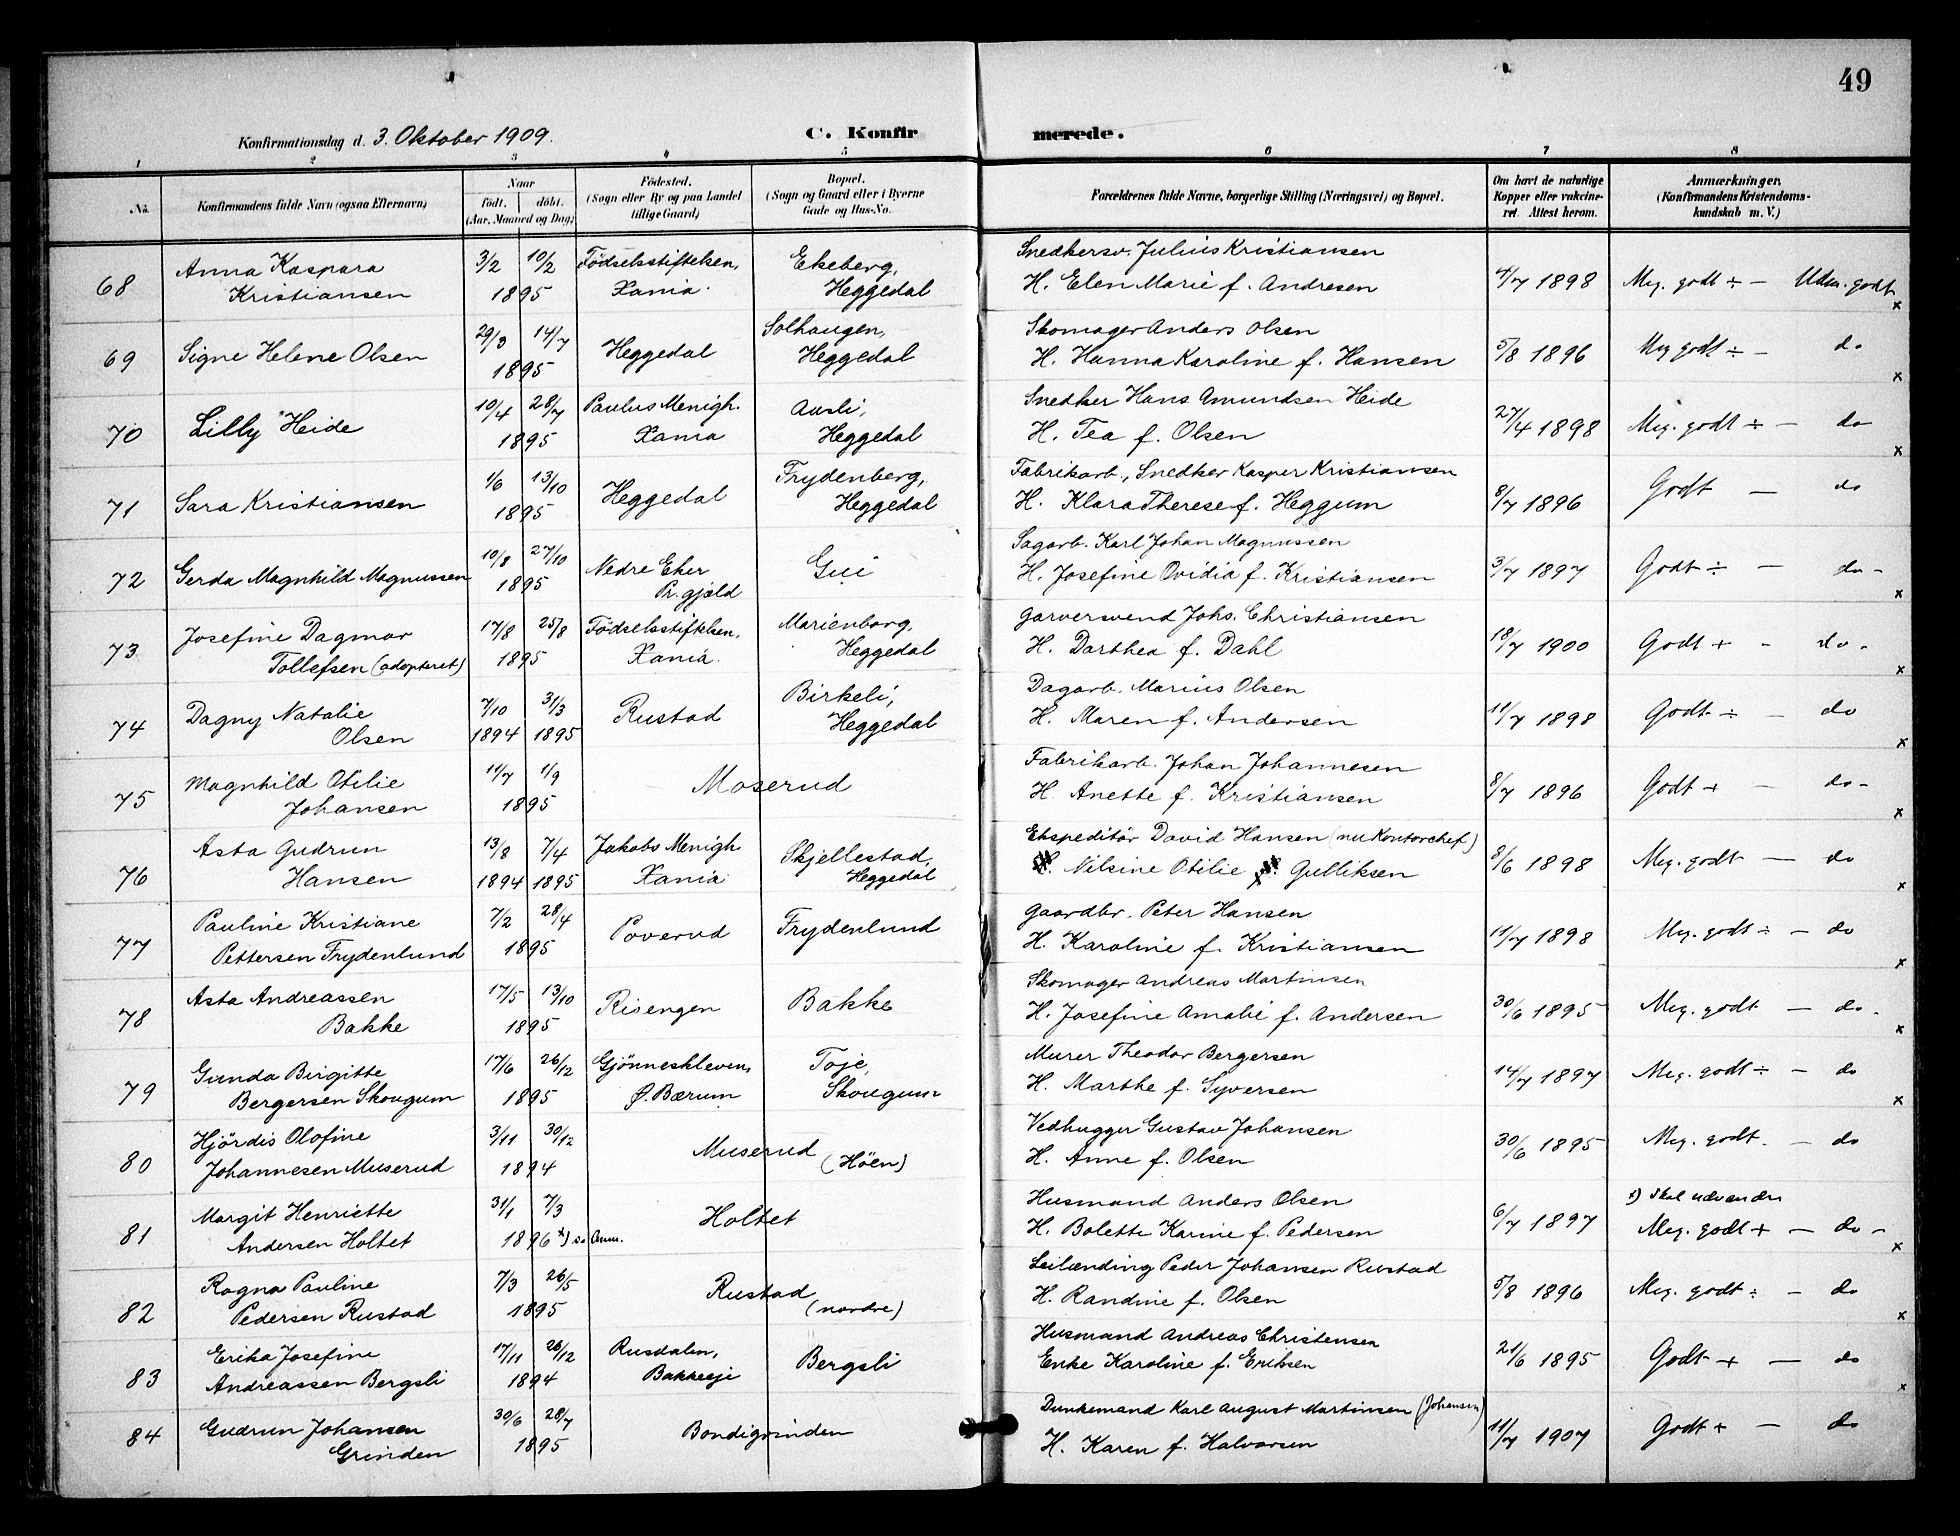 49
Konfirmationsdag d. 3. Oktober 1909. C. Konfirmerede.
1 2 3 4 5 6 7 8
No. Konfirmandens fulde Navn (ogsaa Efternavn) Naar født. døbt. (Aar, Maaned og Dag) Fødested. (Sogn eller By og paa Landet tillige Gaard) Bopæl. (Sogn og Gaard eller i Byerne Gade og Hus-No. Forældrenes fulde Navne, borgerlige Stilling (Næringsvei) og Bopæl. Om havt de naturlige Kopper eller vaccineret. Attest herom. Anmærkninger. (Konfirmandens Kristendomskundskab m. V.)
68 Anna Kaspara Kristiansen 3/2 10/2 1895 Födselsstiftelsen, Xania. Ekeberg, Heggedal Snedkersv. Julius Kristiansen H. Elen Marie f. Andresen 4/7 1898 Meg. godt ÷ — Udm. godt x
69 Signe Helene Olsen 29/3 14/7 1895 Heggedal Solhaugen, Heggedal Skomager Anders Olsen H. Hanna Karoline f. Hansen 5/8 1896 Meg godt ÷ — do x
70 Lilly Heide 10/4 28/7 1895 Paulus Menigh. Xania Aasli, Heggedal Snedker Hans Amundsen Heide H. Tea f. Olsen 27/4 1898 Meg. godt ÷ — do x
71 Sara Kristiansen 1/6 13/10 1895 Heggedal Frydenberg, Heggedal Fabrikarb., Snedker Kasper Kristiansen H. Klara Therese f. Heggum 8/7 1896 Godt — do
72 Gerda Magnhild Magnussen 10/8 27/10 1895 Nedre Eker Pr. gjæld Gui Sagarb. Karl Johan Magnussen H. Josefine Ovidia f. Kristiansen 3/7 1897 Godt ÷ — do - x
73 Josefine Dagmar Tollefsen (adopteret) 17/8 25/8 1895 Födselsstiftelsen, Xania. Marienborg, Heggedal Garversvend Johs. Christiansen H. Dorthea f. Dahl 18/7 1900 Godt + - do - x
74 Dagny Natalie Olsen 7/10 1894 31/3 1895 Rustad Birkeli, Heggedal Dagarb. Marius Olsen H. Maren f. Andersen 11/7 1898 Godt ÷ — do x
75 Magnhild Otilie Johansen 11/7 1/9 1895 Moserud Fabrikarb. Johan Johannesen H. Anette f. Kristiansen 8/7 1896 Godt + — do - x
76 Asta Gudrun Hansen 13/8 1894 7/4 1895 Jakobs Menigh Xania Skjellestad, Heggedal Ekspeditör David Hansen (nu Kontorchef) Nilsine Otilie Gulliksen 8/6 1898 Meg. godt — do x
77 Pauline Kristiane Pettersen Frydenlund 7/2 28/4 1895 Poverud Frydenlund Gaardbr. Peter Hansen H. Karoline f. Kristiansen 11/7 1898 Meg. godt ÷ — do x
78 Asta Andreassen Bakke 17/5 13/10 1895 Risengen Bakke Skomager Andreas Martinsen H. Josefine Amalie f. Andersen 30/6 1895 Meg. godt — do. x
79 Gunda Birgitte Bergersen Skougum 17/6 26/12 1895 Gjönneskleven, Ö. Bærum Toje, Skougum Murer Theodor Bergersen H. Marthe f. Syversen 14/7 1897 Meg. godt ÷ — do x
80 Hjördis Olofine Johannesen Muserud 3/11 30/12 1894 Muserud (Höen) Vedhugger Gustav Johansen H. Anne f. Olsen 30/6 1895 Meg. godt. — do
81 Margit Henriette Andersen Holtet 31/1 7/3 1896 x) se Anm. Holtet Husmand Anders Olsen H. Bolette Karine f. Pedersen 6/7 1897 x) skal udvandre Meg. godt + — do - x
82 Ragna Pauline Pedersen Rustad 7/3 26/5 1895 Rustad (nordre) Leilænding Peder Johansen Rustad H. Randine f. Olsen 5/8 1896 Meg. godt ÷ — do x
83 Erika Josefine Andreassen Bergsli 17/11 26/12 1894 Rusdalen, Bakkeeje Bergsli Husmand Andreas Christensen Enke Karoline f. Eriksen 21/6 1895 Godt + — do x
84 Gudrun Johansen Grinden 30/6 28/7 1895 Bondigrinden Dunkemand Karl August Martinsen (Johansen) H. Karen f. Halvorsen 11/7 1907 Godt + — do